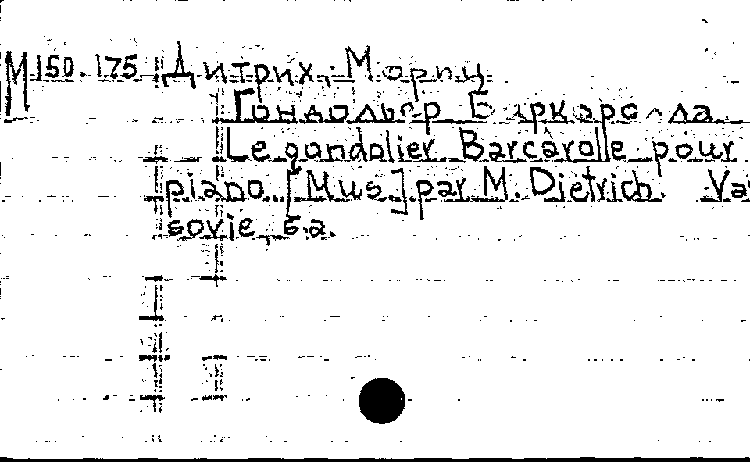 М 150.175 Дитрих, Мориц
Гондольер Баркаролла
Le gondolier Barcarolle pour
piano [Mus] par M. Dietrich. Var
sovie, б.а.